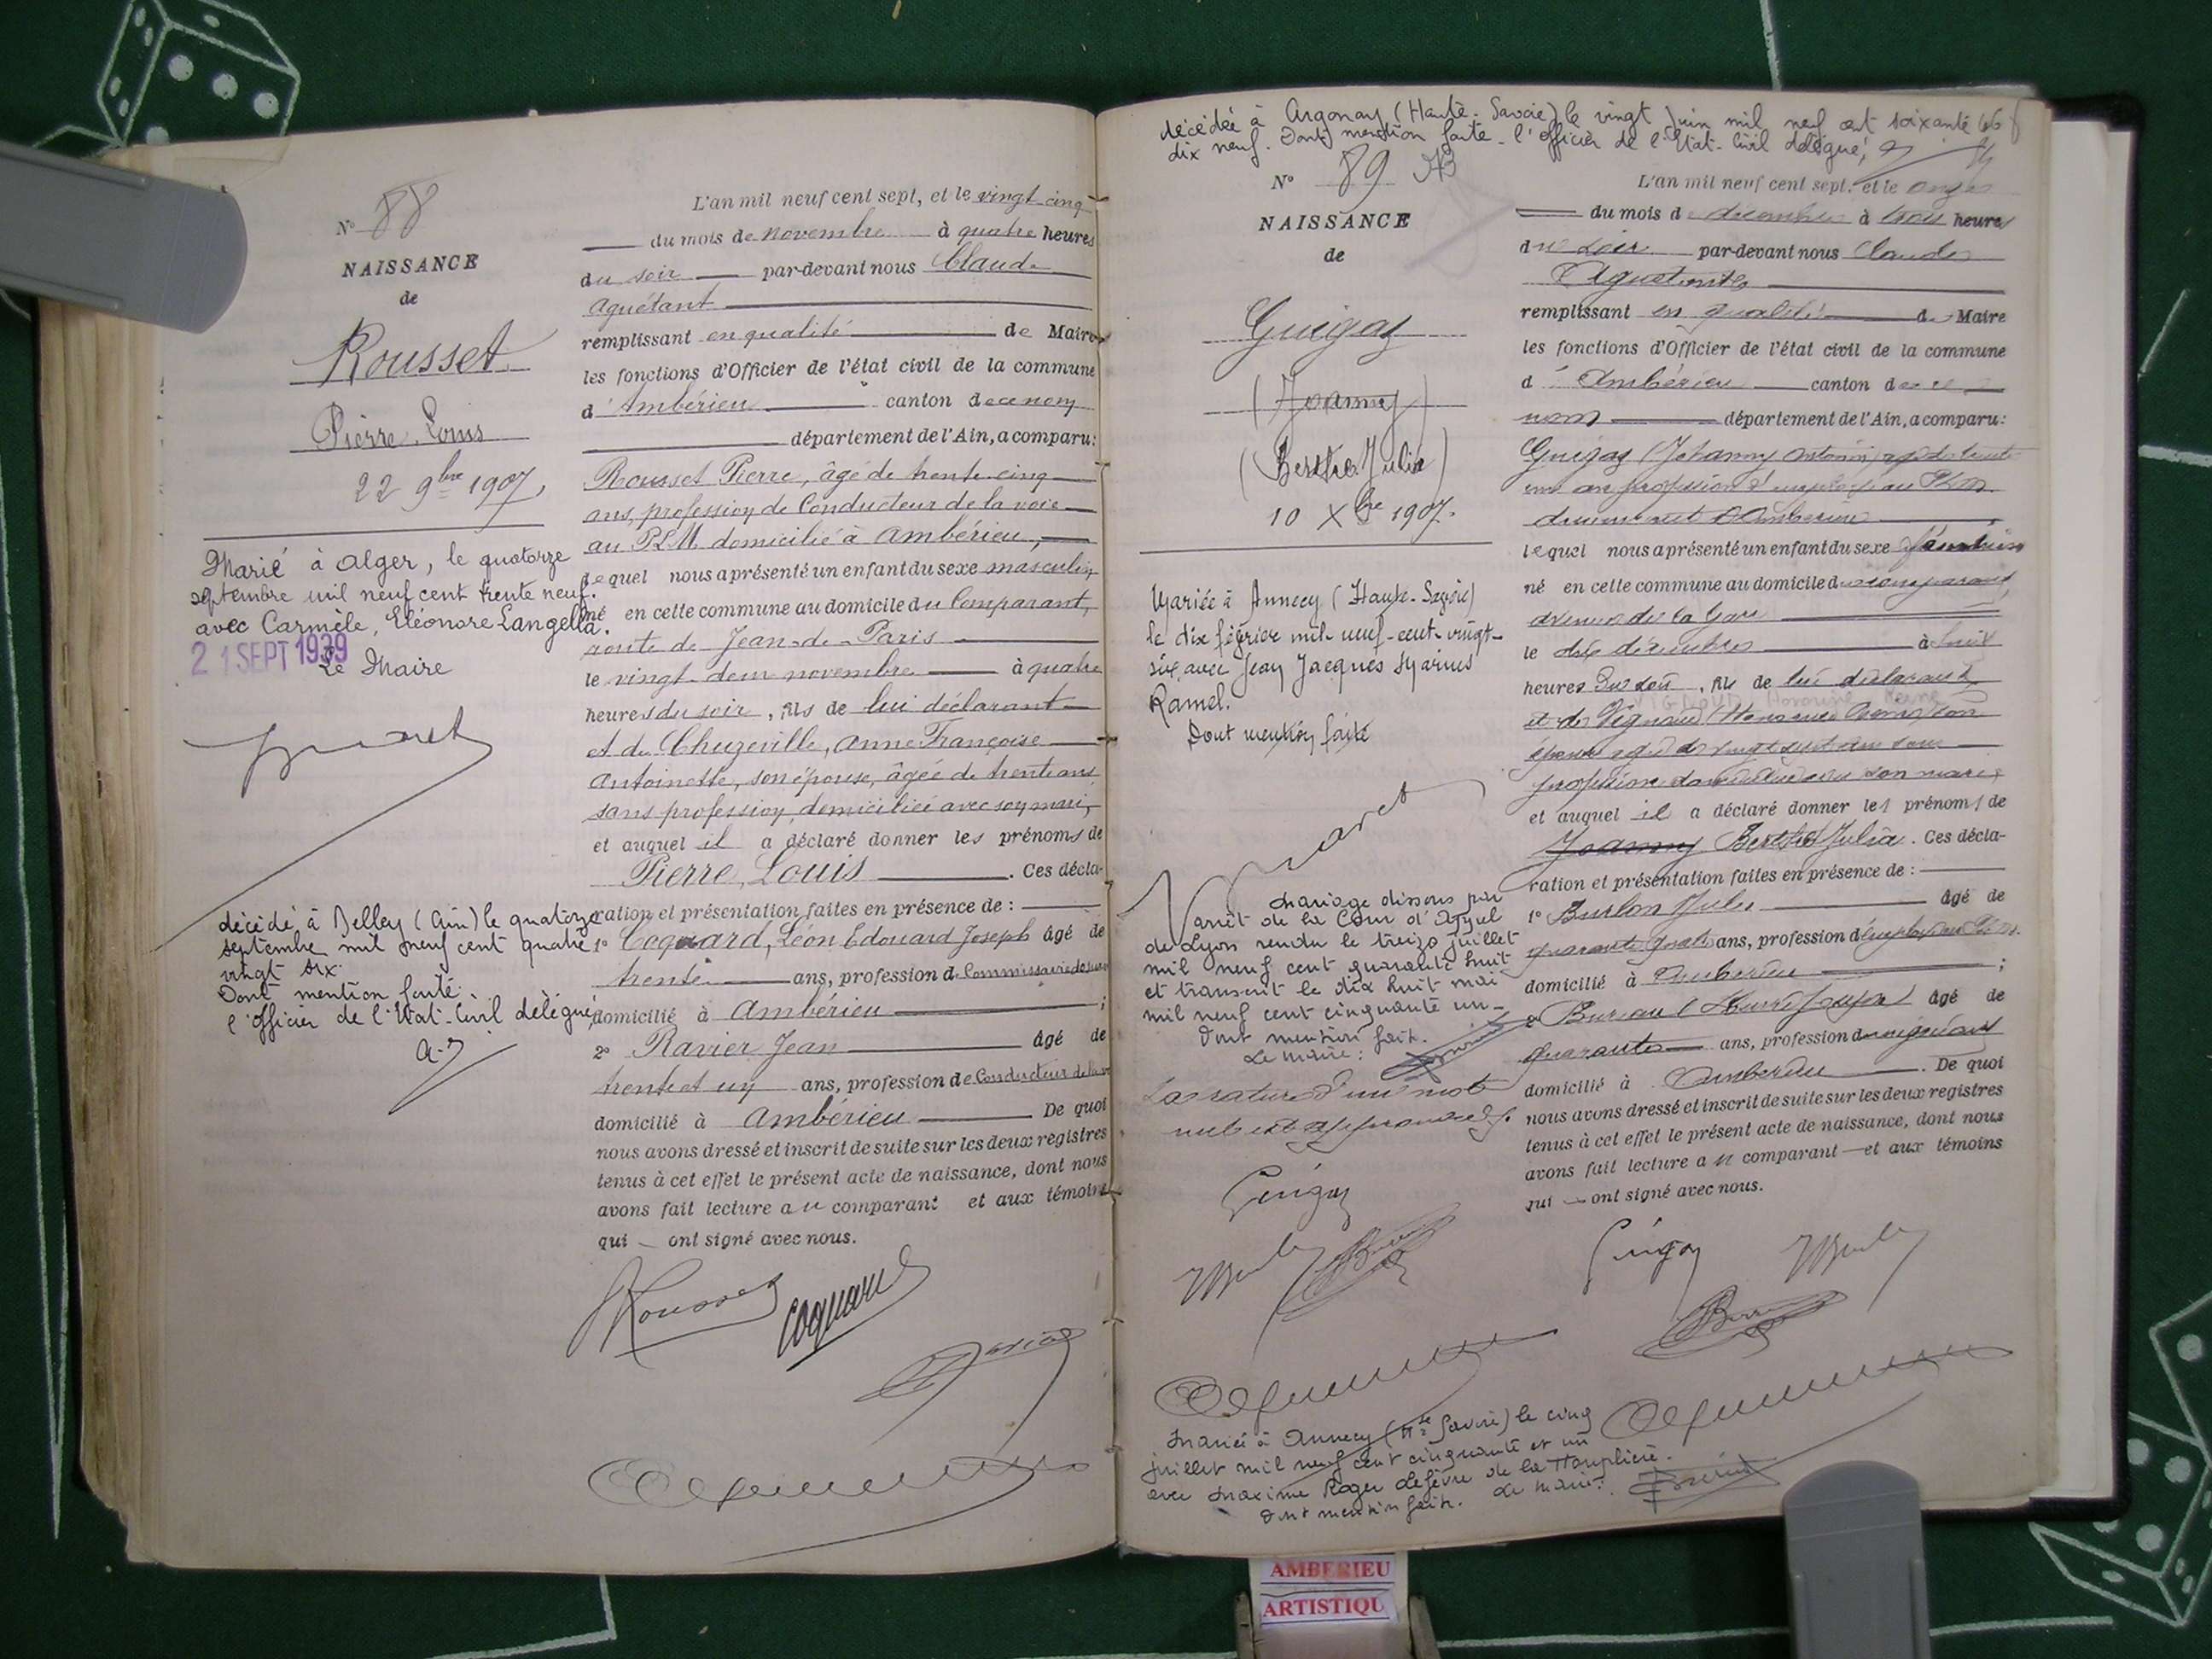 N° 88
NAISSANCE
de
Rousset
Pierre Louis
22 9bre 1907
Marié à Alger, le quatorze
septembre mil neuf cent trente neuf.
avec Carmèle, Eléonore Langella.
21 SEPT 1939
Le Maire
décédé à Belley (Ain) le quatorze
septembre mil neuf cent quatre
vingt six.
Dont mention faite.
l'officier de l'Etat-Civil délégué,
L'an mil neuf cent sept, et le vingt-cinq
du mois de novembre à quatre heures
du soir par-devant nous Claude
Aguétant
remplissant en qualité de Maire
les fonctions d'Officier de l'état civil de la commune
d'Ambérieu canton de ce nom
département de l'Ain, a comparu:
Rousset Pierre, âgé de trente-cinq
ans, profession de Conducteur de la voie
au PLM domicilié à Ambérieu,
lequel nous a présenté un enfant du sexe masculin
né en cette commune au domicile du Comparant,
route de Jean-de-Paris
le vingt-deux novembre à quatre
heures du soir, fils de lui déclarant
et de Chuzeville, Anne Françoise
Antoinette, son épouse, âgée de trente ans
sans profession, domiciliée avec son mari,
et auquel il a déclaré donner les prénoms de
Pierre, Louis . Ces décla-
ration et présentation faites en présence de :
1° Coquard, Léon Edouard Joseph âgé de
trente ans, profession de Commissaire de
domicilié à Ambérieu ;
2° Ravier Jean âgé de
trente et un ans, profession de Conducteur de la
domicilié à Ambérieu De quoi
nous avons dressé et inscrit de suite sur les deux registres
tenus à cet effet le présent acte de naissance, dont nous
avons fait lecture au comparant et aux témoins
qui ont signé avec nous.
Rousset
Coquard
Ravier
décédée à Argonay (Haute-Savoie) le vingt Juin mil neuf cent soixante
dix neuf. Dont mention faite - l'officier de l'Etat-Civil délégué,
N° 89
NAISSANCE
de
Guigaz
(Joanny)
(Berthe Julia)
10 Xbre 1907.
Mariée à Annecy (Haute-Savoie)
le dix février mil neuf-cent-vingt-
six avec Jean Jacques Marius
Ramel.
Dont mention faite
Mariage dissous par
arrêt de la Cour d'Appel
de Lyon rendu le treize juillet
mil neuf cent quarante huit
et transcrit le dix huit mai
mil neuf cent cinquante un-
Dont mention faite.
Le maire:
La rature d'un mot
nul est approuvée
Guigaz
Mariée à Annecy (Hte Savoie) le cinq
juillet mil neuf cent cinquante et un
avec Maxime Roger Lefèvre de la Houplière.
Dont mention faite. Le Maire:
L'an mil neuf cent sept, et le onze
du mois de décembre à trois heures
du soir par-devant nous Claude
Aguétant
remplissant en qualité de Maire
les fonctions d'Officier de l'état civil de la commune
d'Ambérieu canton de ce
nom département de l'Ain, a comparu:
Guigaz (Johanny Antonin) âgé de trente
un ans profession d'employé au PLM
lequel nous a présenté un enfant du sexe féminin
né en cette commune au domicile du comparant,
avenue de la Gare
le dix décembre à huit
heures du soir, fils de lui déclarant
et de Vignoud (Honorine son
épouse âgée de vingt sept ans sans
profession domiciliée avec son mari,
et auquel il a déclaré donner les prénoms de
Joanny Berthe Julia. Ces décla-
ration et présentation faites en présence de :
1° Burlon Jules âgé de
quarante quatre ans, profession d'employé au PLM
domicilié à Ambérieu ;
2° Bureau âgé de
quarante ans, profession de négociant
domicilié à Ambérieu . De quoi
nous avons dressé et inscrit de suite sur les deux registres
tenus à cet effet le présent acte de naissance, dont nous
avons fait lecture au comparant et aux témoins
qui ont signé avec nous.
Guigaz
AMBERIEU
ARTISTIQU